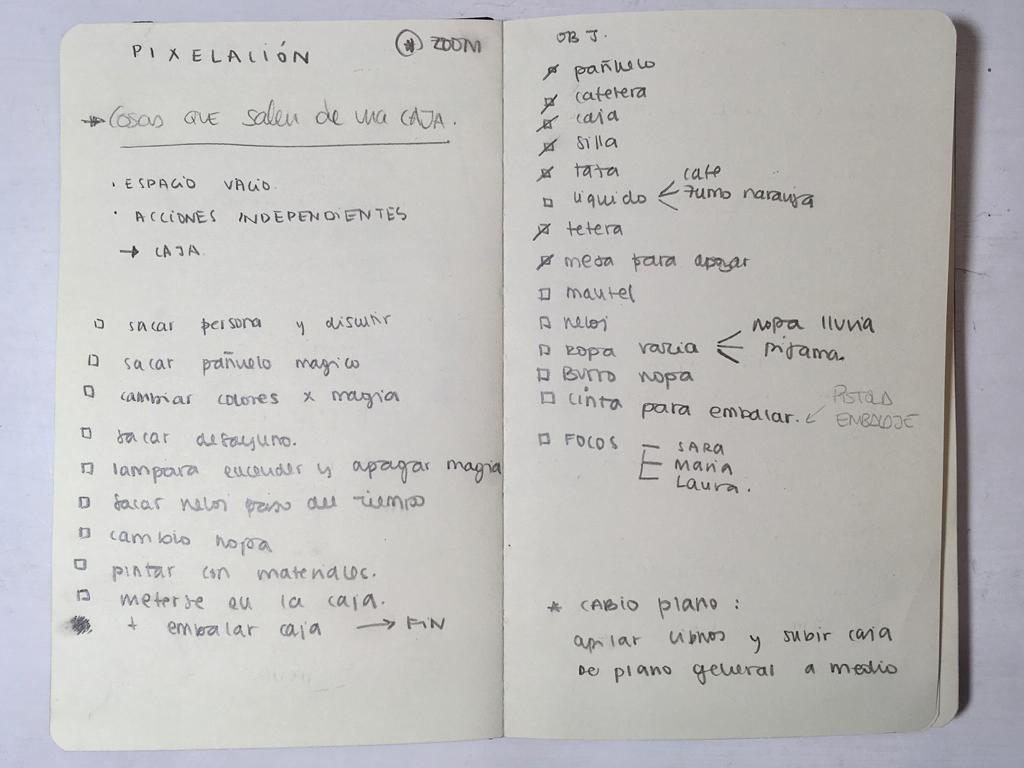 PIXELACIÓN
* ZOOM
→ Cosas QUE salen de una CAJA.
· ESPACIO VACIO.
· ACCIONES INDEPENDIENTES
→ CAJA.
sacar persona y discutir
sacar pañuelo magico
cambiar colores x magia
sacar desayuno.
lampara encender y apagar magia
sacar reloj paso del tiempo
cambio ropa
pintar con materiales.
meterse en la caja.
+ embalar caja → FIN
OBJ.
pañuelo
cafetera
caja
silla
taza
liquido < cafe
zumo naranja
tetera
mesa para apoyar
mantel
reloj
ropa varia < ropa lluvia
pijama.
Burro ropa
cinta para embalar. ← PISTOLA
EMBALAJE
FOCOS SARA
Maria
Laura.
* CABIO plano :
apilar libros y subir caja
De plano general a medio